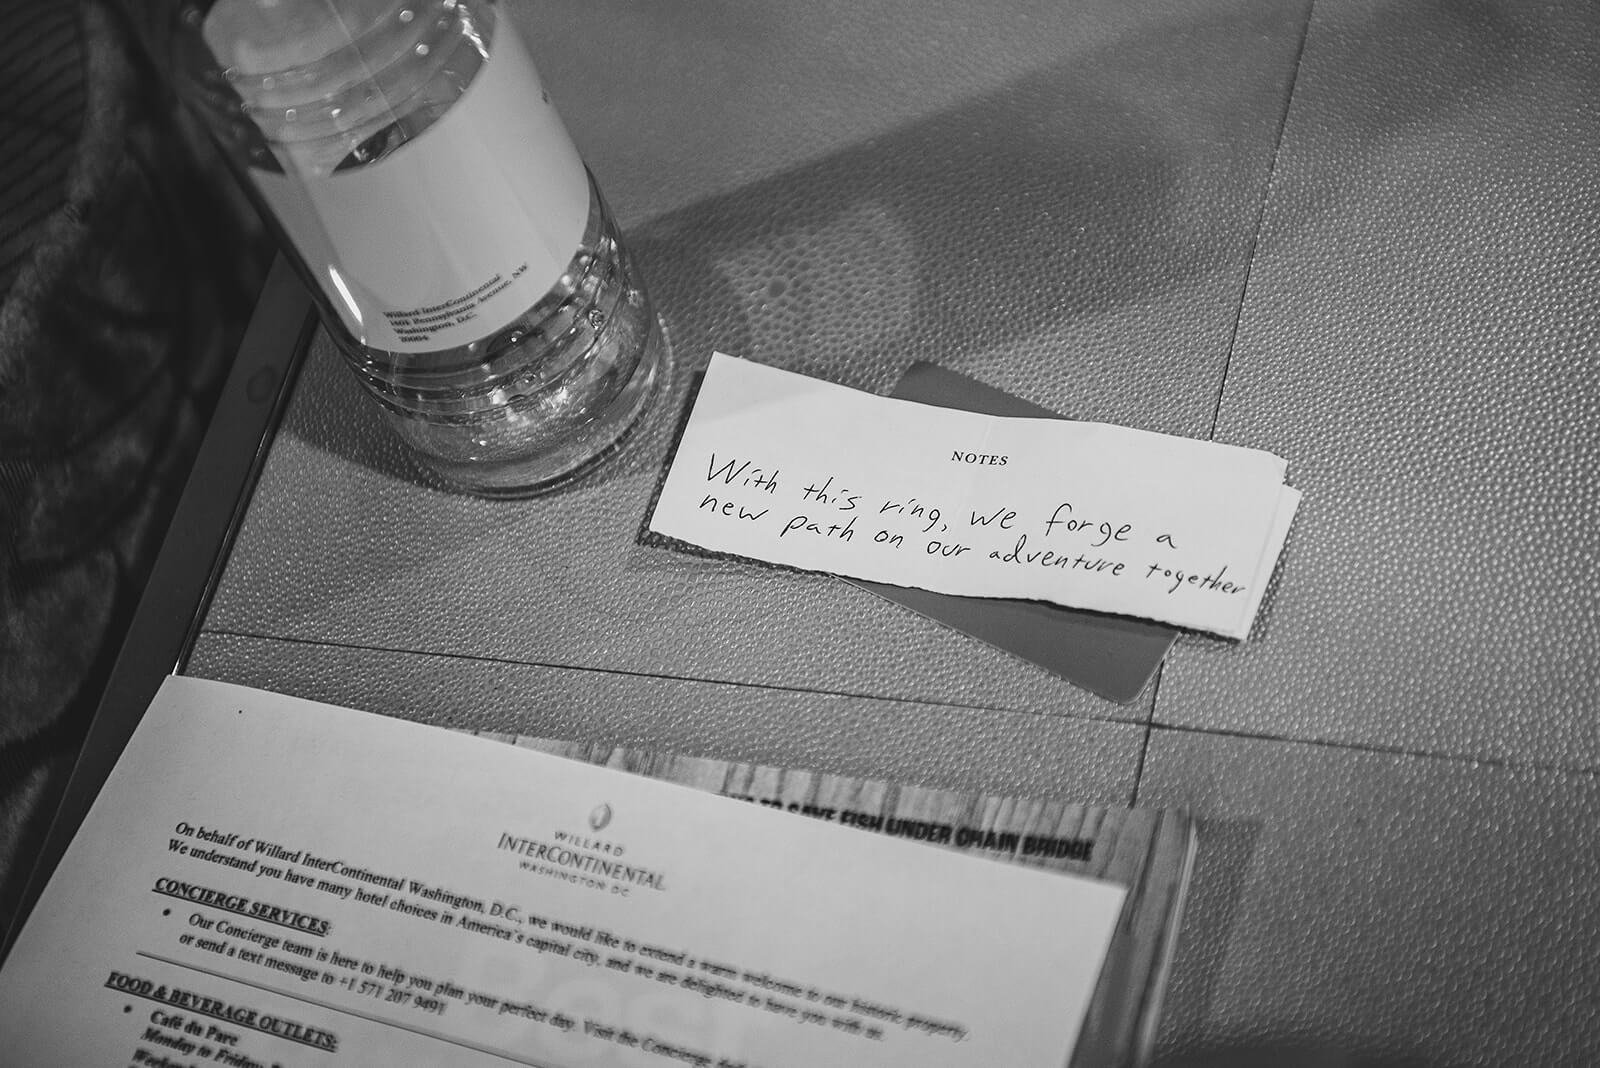 Willard InterContinental
1401 Pennsylvania Avenue, NW
Washington, D.C.
20004
NOTES
With this ring, we forge a
new path on our adventure together
TO SAVE FISH UNDER CHAIN BRIDGE
WILLARD
INTERCONTINENTAL
WASHINGTON DC
On behalf of Willard InterContinental Washington, D.C., we would like to extend a warm welcome to our historic property.
We understand you have many hotel choices in America's capital city, and we are delighted to have you with us.
CONCIERGE SERVICES:
• Our Concierge team is here to help you plan your perfect day. Visit the Concierge
or send a text message to +1 571 207 9491
FOOD & BEVERAGE OUTLETS:
• Café du Parc
Monday to Friday,